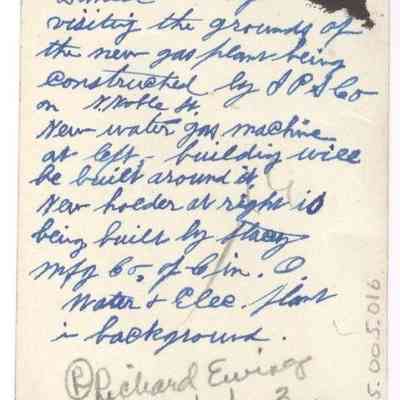 visiting the grounds of
the new gas plant being
constructed by I P S Co
on N. Noble St.
New water gas machine
at left - building will
be built around it
New holder at right is
being built by Stacey
Mfg Co. of Cin. O.
Water & Elec. plant
in background.
Richard Ewing
5.005.016